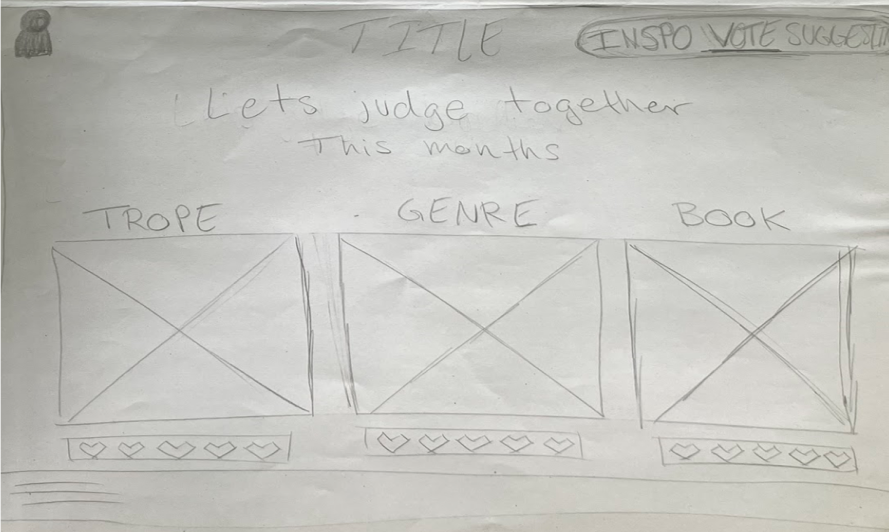 TITLE
INSPO VOTE SUGGESTIN
Lets judge together
This months
TROPE GENRE BOOK